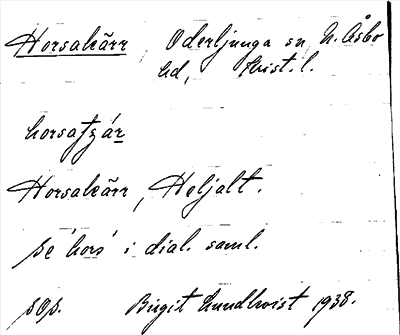 Horsakärr, Oderljunga sn, N. Åsbo
hd, Krist. l.
horsaʃzár
Horsakärr, Heljalt.
se 'hors' i dial. saml.
sOs. Birgit Lundkvist 1938.